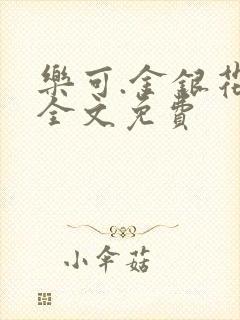 樂可.金銀花
全文免費
小伞菇